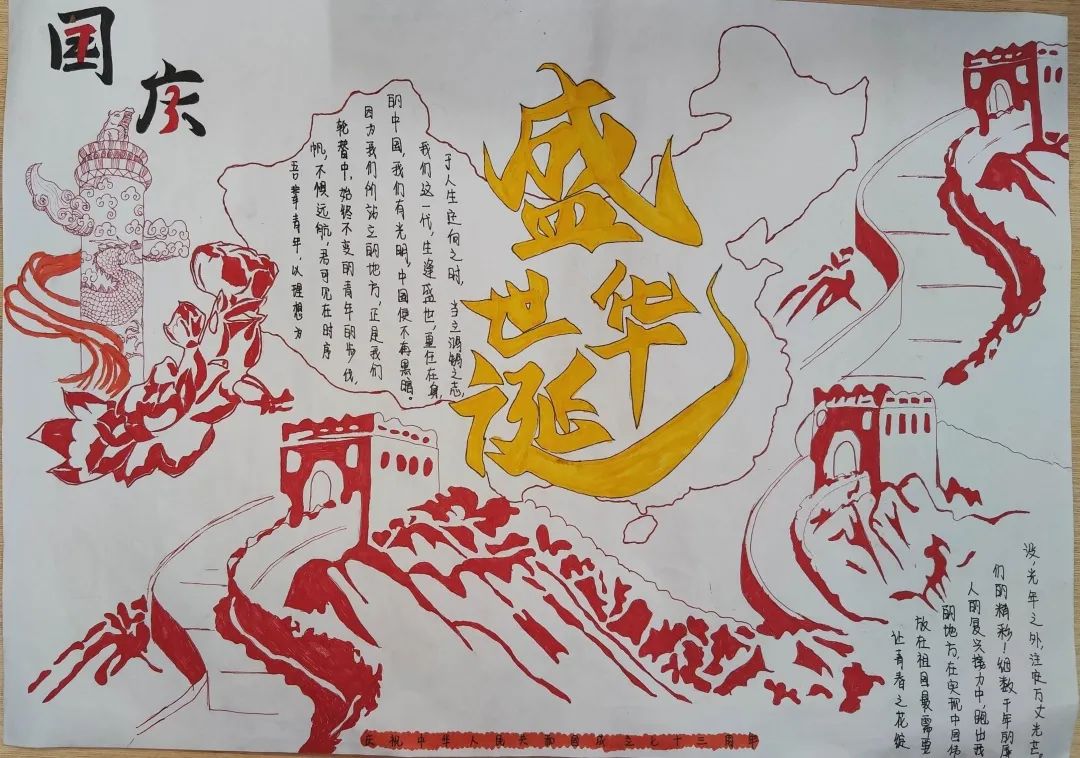 国庆
盛世华诞
吾辈青年,以理想为
帆,不惧远航,君可见在时序
轮替中,始终不变的青年的步伐,
因为我们所站立的地方,正是我们
的中国,我们有光明,中国便不再黑暗。
我们这一代,生逢盛世,重任在身,
于人生定向之时,当立鸿鹄之志,
让青春之花绽
放在祖国最需要
的地方,在实现中国伟
大的复兴接力中,跑出我
们的精彩!细数千年的
没,光年之外,注定万丈光芒。
庆祝中华人民共和国成立七十三周年